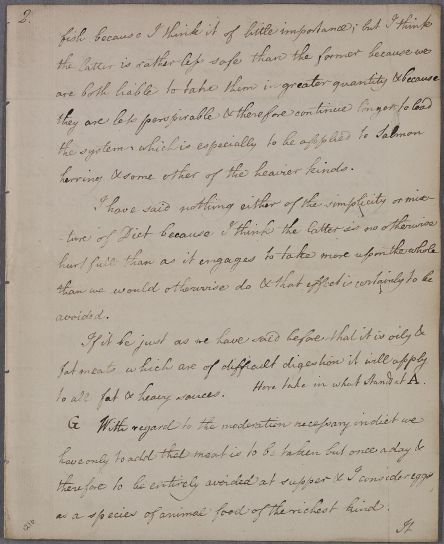 2.
fish because I think it of little importance; but I think
the latter is rather less safe than the former because we
are both liable to take them in greater quantity & because
they are less perspirable & therefore continue longer to load
the system which is especially to be applied to Salmon
herring & some other of the heavier kinds.
I have said nothing either of the simplicity or mix
-ture of Diet because I think the latter is no otherwise
hurtfull than as it engages to take more upon the whole
than we would otherwise do & that effect is certainly to be
avoided.
If it be just as we have said before that it is oily &
fat meats which are of difficult digestion it will apply
to all fat & heavy sauces. Here take in what Stands at A.
G With regard to the moderation necessary in diet we
have only to add that meat is to be taken but once a day &
therefore to be entirely avoided at supper & I consider eggs
as a species of animal food of the richest kind.
It